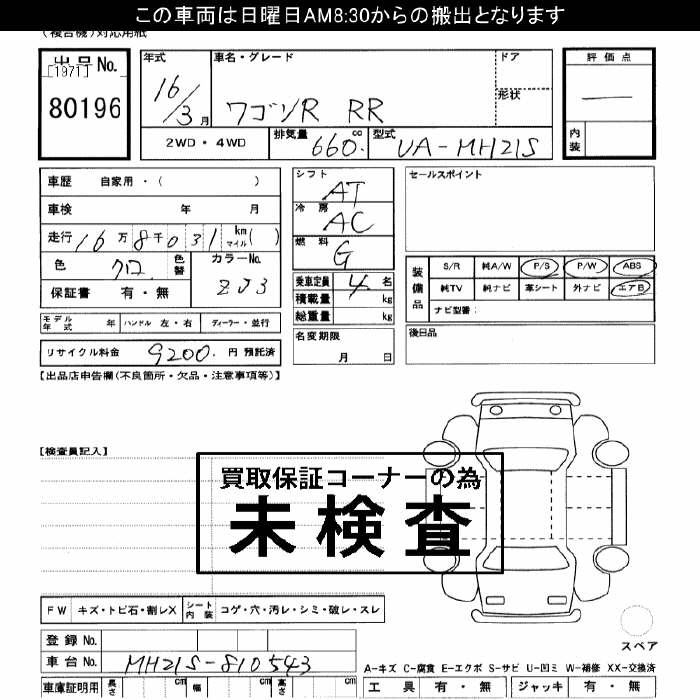 この車両は日曜日AM8:30からの搬出となります
(複合機)対応用紙
出品No.
[1971]
80196
年式
16/3月
車名・グレード
ワゴンR RR
ドア
形状
評価点
—
内装
2WD・4WD
排気量 660. cc
型式 UA-MH21S
車歴 自家用・( )
車検 年 月
走行 16万8千031 km マイル( )
色 クロ 色替
カラーNo. ZJ3
保証書 有・無
モデル年式 年 ハンドル 左・右 ディーラー・並行
リサイクル料金 9200. 円 預託済
シフト AT
冷房 AC
燃料 G
乗車定員 4 名
積載量 kg
総重量 kg
名変期限
月 日
セールスポイント
装備品
S/R 純A/W P/S P/W ABS
純TV 純ナビ 革シート 外ナビ エアB
ナビ型番:
後日品
【出品店申告欄(不良箇所・欠品・注意事項等)】
【検査員記入】
買取保証コーナーの為
未検査
FW キズ・トビ石・割レX シート内装 コゲ・穴・汚レ・シミ・破レ・スレ
スペア
登録No.
車台No. MH21S-810543
車庫証明用 長さ cm 幅 cm 高さ cm
A-キズ C-腐食 E-エクボ S-サビ U-凹ミ W-補修 XX-交換済
工具 有・無 ジャッキ 有・無